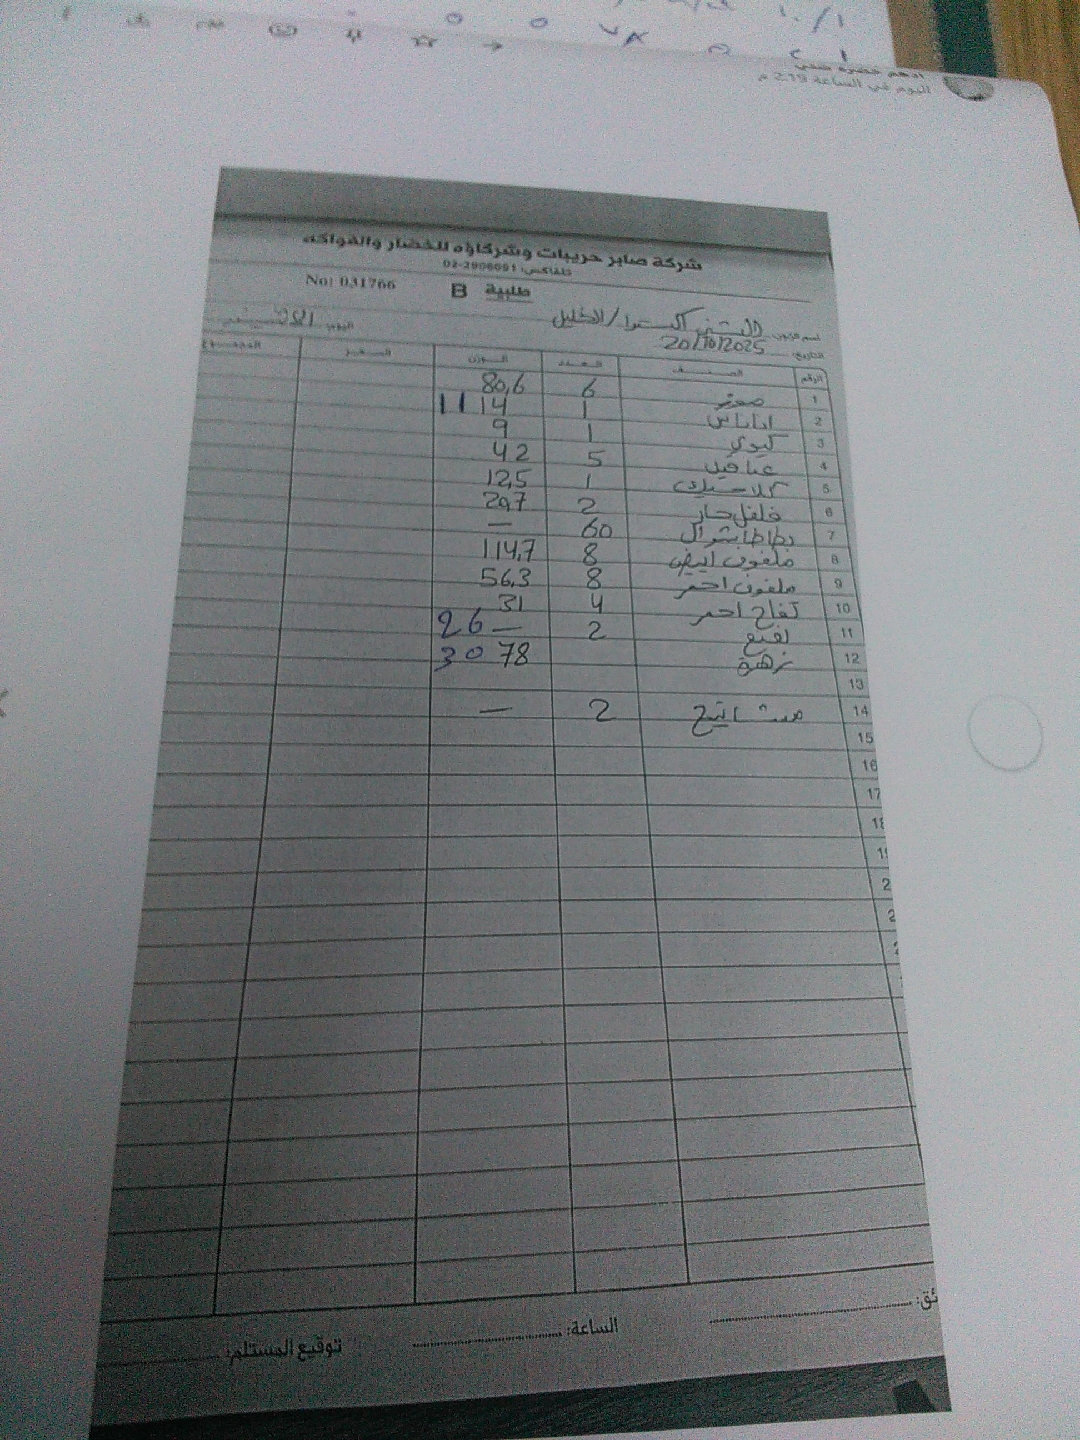 اليوم في الساعة 2:19 م
شركة صابر حريبات وشركاؤه للخضار والفواكه
تلفاكس: 02-2906091
طلبية B No: 031766
اسم الزبون: اكسترا/الخليل اليوم: الاثنين
التاريخ: 20/10/2025
الرقم الصنف العدد الوزن السعر المجموع
1 موز 6 80,6
2 اناناس 1 14 11
3 كيوي 1 9
4 5 42
5 كلاسيك 1 12,5
6 فلفل حار 2 29,7
7 بطاطا 60 —
8 ملفوف ابيض 8 114,7
9 ملفوف احمر 8 56,3
10 تفاح احمر 4 31
11 2 — 26
12 زهرة 78 30
13
14 مشاتيح 2 —
15
16
17
الساعة:
توقيع المستلم: